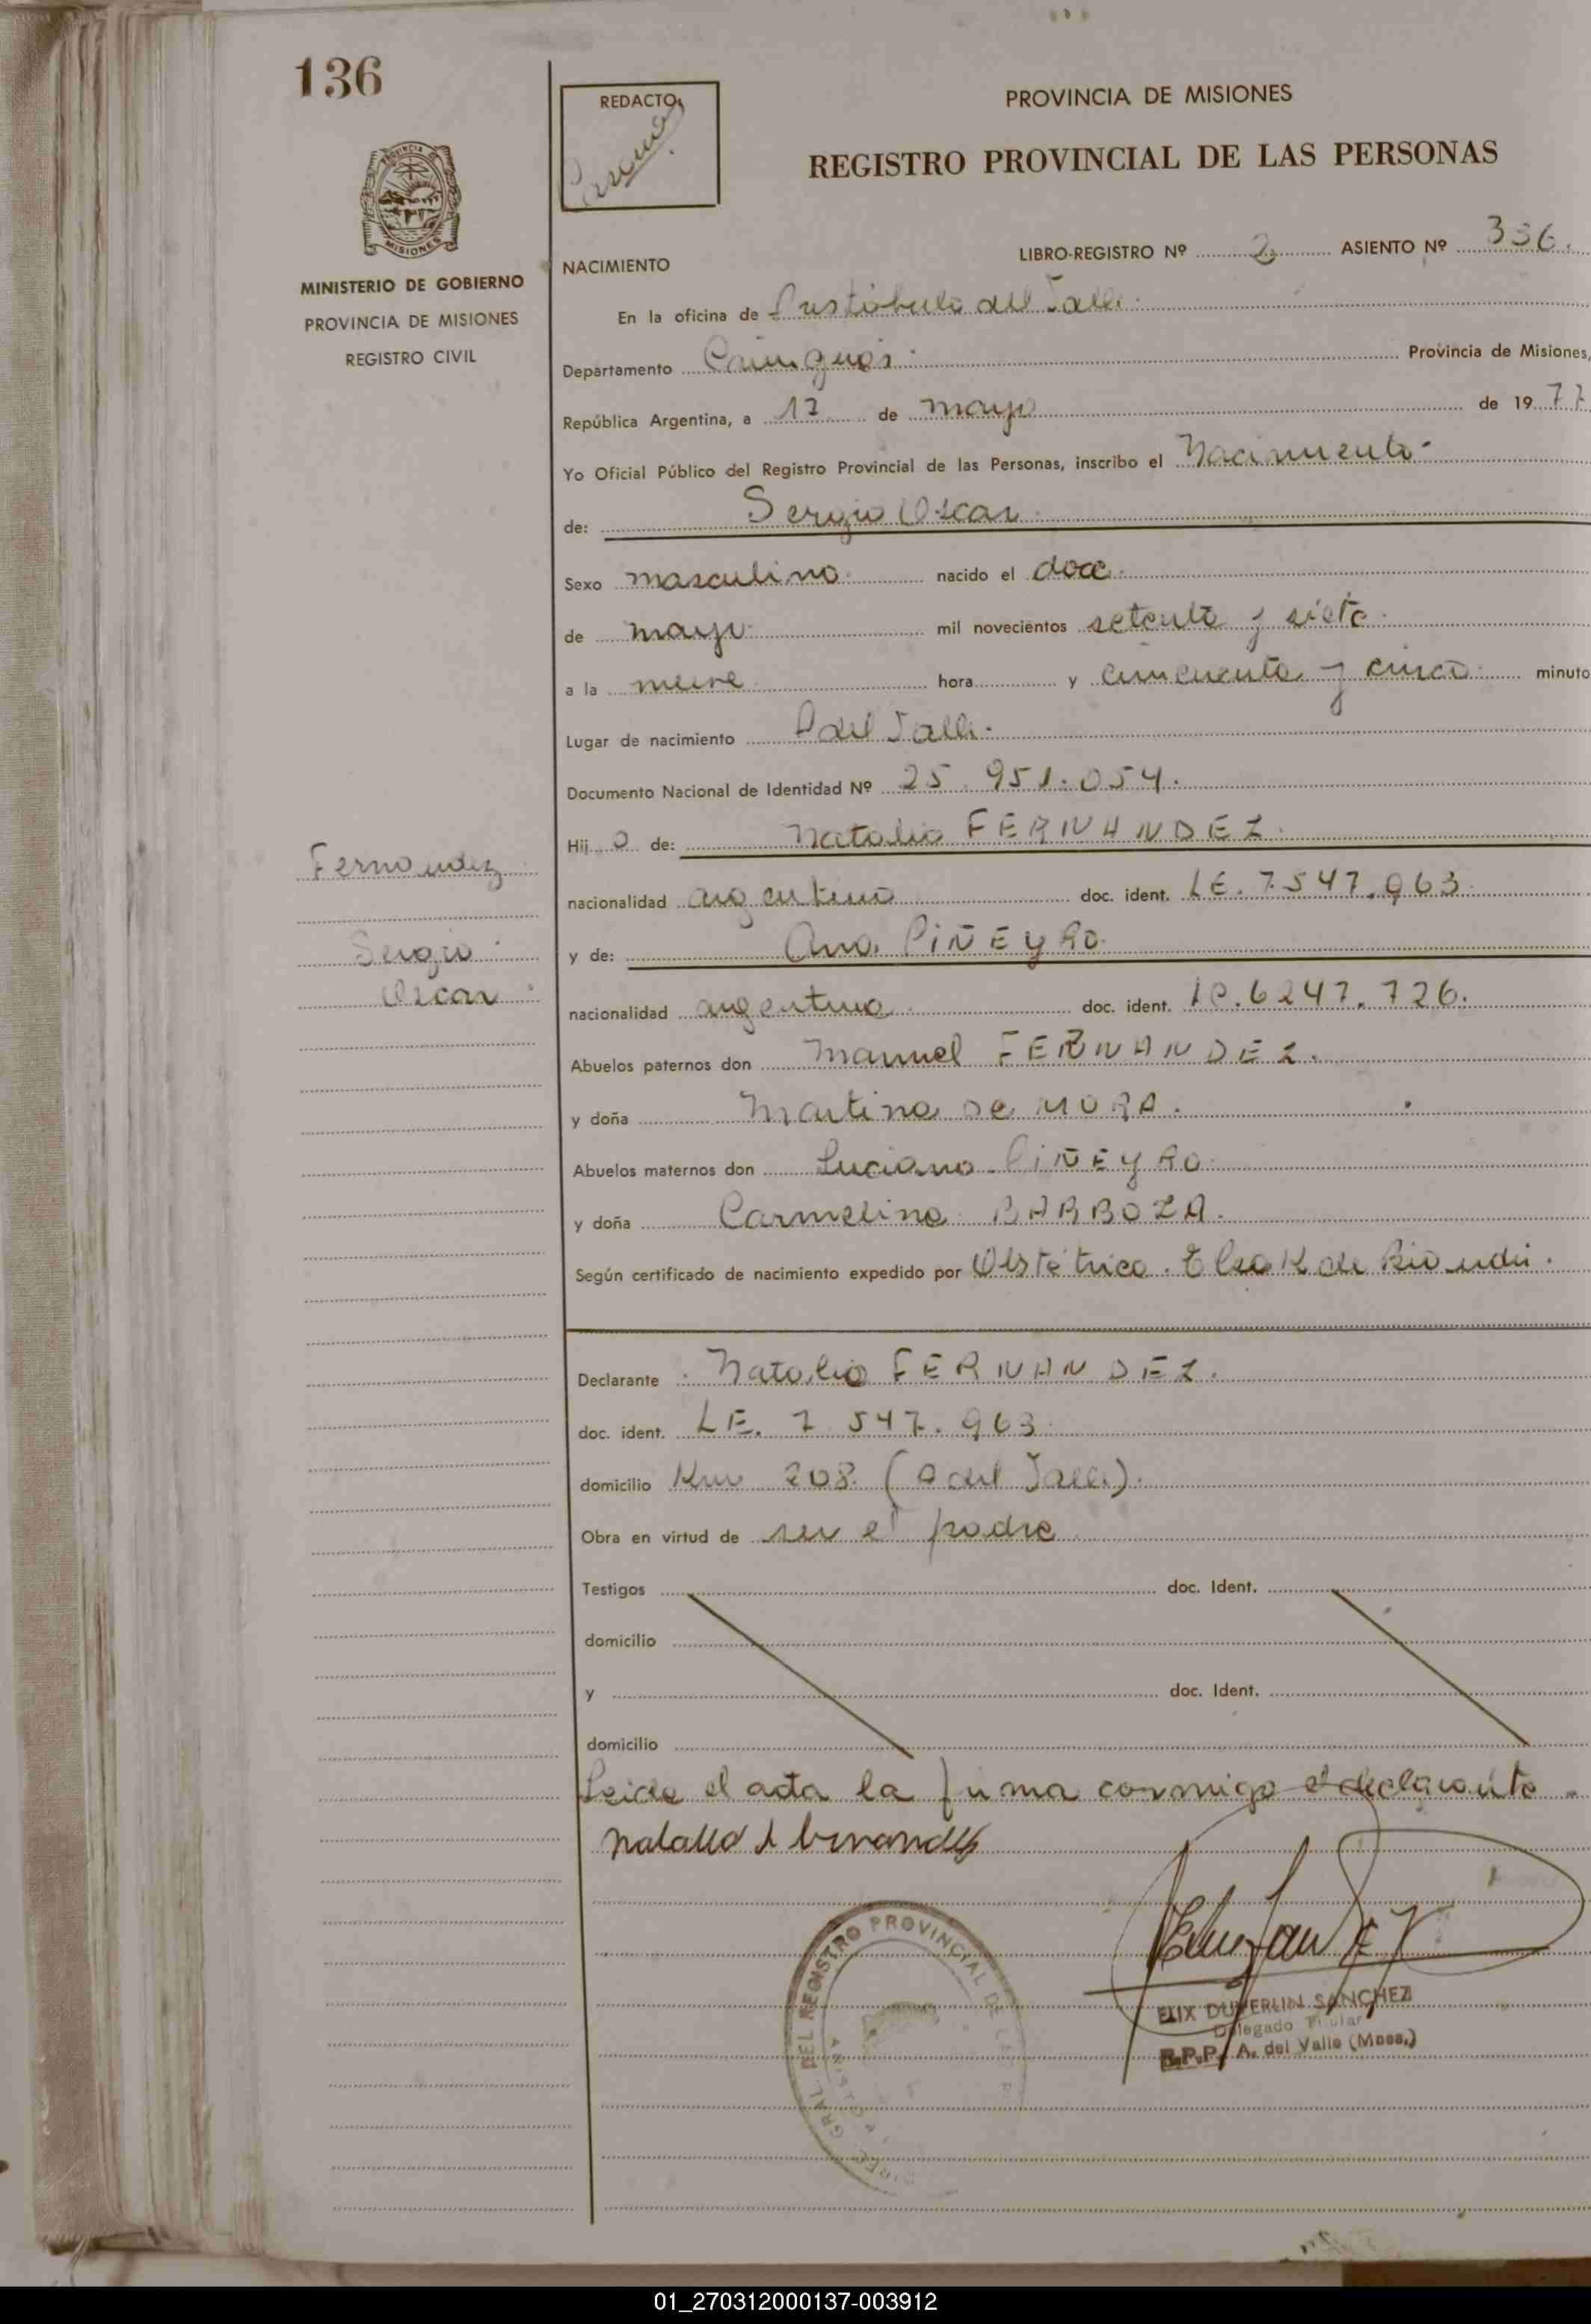 136
REDACTO,
PROVINCIA DE MISIONES
REGISTRO PROVINCIAL DE LAS PERSONAS
PROVINCIA
MISIONES
LIBRO-REGISTRO Nº 2 ASIENTO Nº 336.
MINISTERIO DE GOBIERNO
PROVINCIA DE MISIONES
REGISTRO CIVIL
NACIMIENTO
En la oficina de Aristóbulo del Valle.
Departamento Cainguás. Provincia de Misiones,
República Argentina, a 17 de mayo de 1977
Yo Oficial Público del Registro Provincial de las Personas, inscribo el Nacimiento-
de: Sergio Oscar.
Sexo masculino. nacido el doce.
de mayo. mil novecientos setenta y siete.
a la nueve. hora y cincuenta y cinco. minuto
Lugar de nacimiento A del Valle.
Documento Nacional de Identidad Nº 25.951.054.
Hij o de: Natalio FERNANDEZ.
nacionalidad argentino doc. ident. LE. 7.547.963.
y de: Ana PIÑEYRO.
nacionalidad argentina. doc. ident. LC. 6247.726.
Abuelos paternos don Manuel FERNANDEZ.
y doña Martina De MORA.
Abuelos maternos don Luciano PIÑEYRO.
y doña Carmelina BARBOZA.
Según certificado de nacimiento expedido por Obstétrica. Elsa K de
Fernandez
Sergio.
Oscar.
Declarante Natalio FERNANDEZ.
doc. ident. LE. 7.547.963.
domicilio Km 208. (A del Valle).
Obra en virtud de ser el padre.
Testigos doc. Ident.
domicilio
y doc. Ident.
domicilio
Leida el acta la firma conmigo el declarante.
Natalio Fernandez
GRAL. DEL REGISTRO PROVINCIAL DE LAS
FELIX DUVERLIN SANCHEZ
Delegado Titular
R.P.P. A. del Valle (Mnes.)
01_270312000137-003912